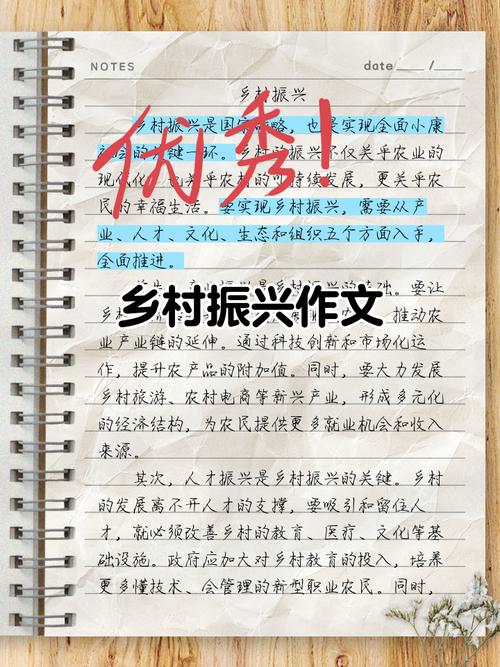 NOTES
date ___ / ___
乡村振兴
优秀！
乡村振兴是国家战略，也是实现全面小康
社会的关键一环。乡村振兴不仅关乎农业的
现代化，也关乎农村的可持续发展，更关乎农
民的幸福生活。要实现乡村振兴，需要从产
业、人才、文化、生态和组织五个方面入手，
全面推进。
首先，产业振兴是乡村振兴的基础。要让
乡村振兴作文
乡村 推动农
业产业链的延伸。通过科技创新和市场化运
作，提升农产品的附加值。同时，要大力发展
乡村旅游、农村电商等新兴产业，形成多元化
的经济结构，为农民提供更多就业机会和收入
来源。
其次，人才振兴是乡村振兴的关键。乡村
的发展离不开人才的支撑，要吸引和留住人
才，就必须改善乡村的教育、医疗、文化等基
础设施。政府应加大对乡村教育的投入，培养
更多懂技术、会管理的新型职业农民。同时，